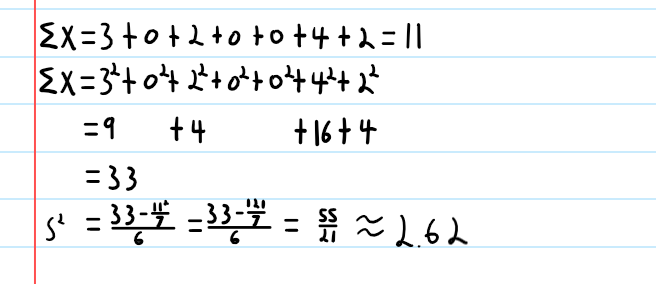 Σx=3+0+2+0+0+4+2=11
Σx=3²+0²+2²+0²+0²+4²+2²
=9 +4 +16+4
=33
s² = (33-11²/7)/6 = (33-121/7)/6 = 55/21 ≈ 2.62